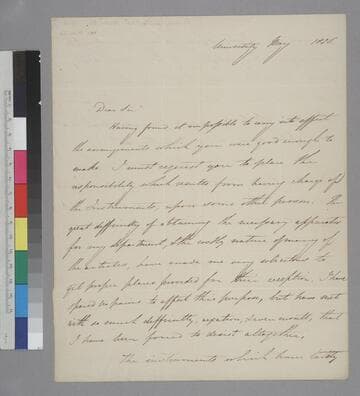 University May 1836
Dear Sir
Having found it impossible to carry into effect
the arrangements which you were good enough to
make. I must request you to place the
responsibility which results from having charge of
the Instruments, upon some other person. The
great difficulty of obtaining the necessary apparatus
for my department, & the costly nature of many of
the articles, have made me very solicitous to
get proper places provided for their reception. I have
spared no pains to effect this purpose, but have met
with so much difficulty, vexation, & even insult, that
I have been forced to desist altogether.
The instruments which have lately